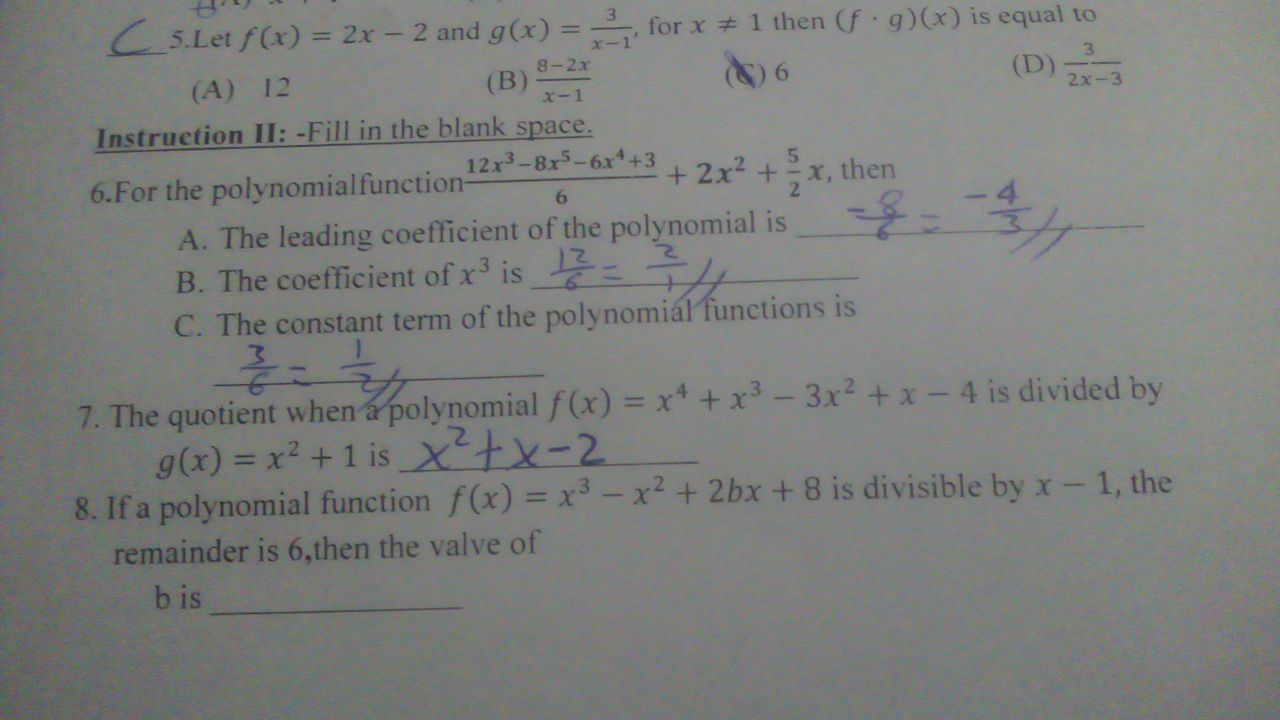 C 5.Let f(x) = 2x − 2 and g(x) = 3/(x−1), for x ≠ 1 then (f · g)(x) is equal to
(A) 12 (B) (8−2x)/(x−1) (C) 6 (D) 3/(2x−3)
Instruction II: -Fill in the blank space.
6.For the polynomialfunction (12x³−8x⁵−6x⁴+3)/6 + 2x² + 5/2 x, then
A. The leading coefficient of the polynomial is −8/6 = −4/3 //
B. The coefficient of x³ is 12/6 = 2/1 //
C. The constant term of the polynomial functions is
3/6 = 1/2 //
7. The quotient when a polynomial f(x) = x⁴ + x³ − 3x² + x − 4 is divided by
g(x) = x² + 1 is x²+x−2
8. If a polynomial function f(x) = x³ − x² + 2bx + 8 is divisible by x − 1, the
remainder is 6,then the valve of
b is